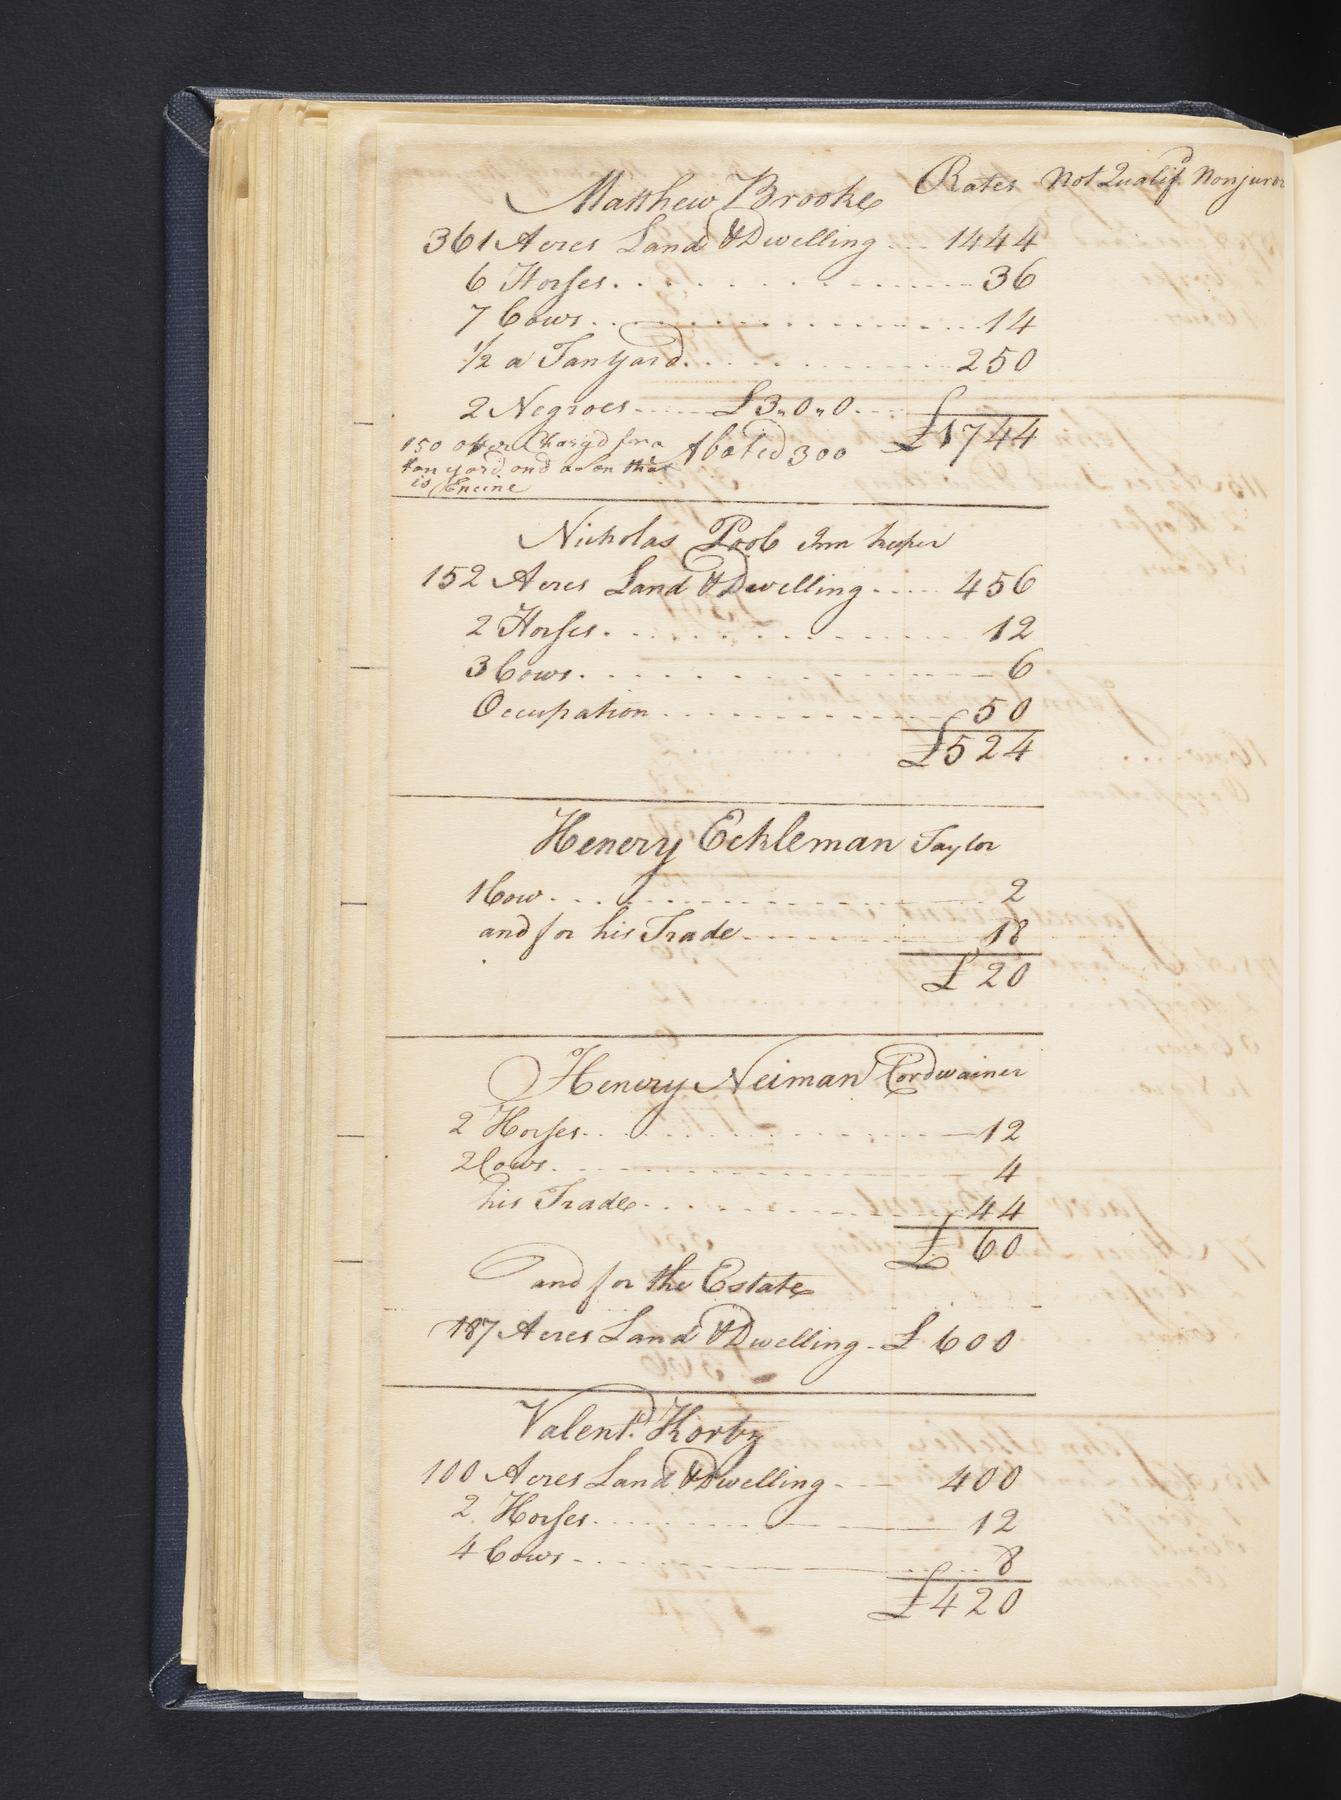 Matthew Brooke Rates Not Qualifd Nonjuror
361 Acres Land & Dwelling 1444
6 Horses 36
7 Cows 14
1/2 a Tan Yard 250
2 Negroes £3,,0,,0
£1744
150 over Chargd for a Abated 300
tan yard and a Son that
is Encine
Nicholas Poob Inn Keeper
152 Acres Land & Dwelling 456
2 Horses 12
3 Cows 6
Occupation 50
£524
Henery Eckleman Taylor
1 Cow 2
and for his Trade 18
£20
Henery Neiman Cordwainer
2 Horses 12
2 Cows 4
his Trade 44
£60
and for the Estate
187 Acres Land & Dwelling £600
Valent. Kortz
100 Acres Land & Dwelling 400
2 Horses 12
4 Cows 8
£420